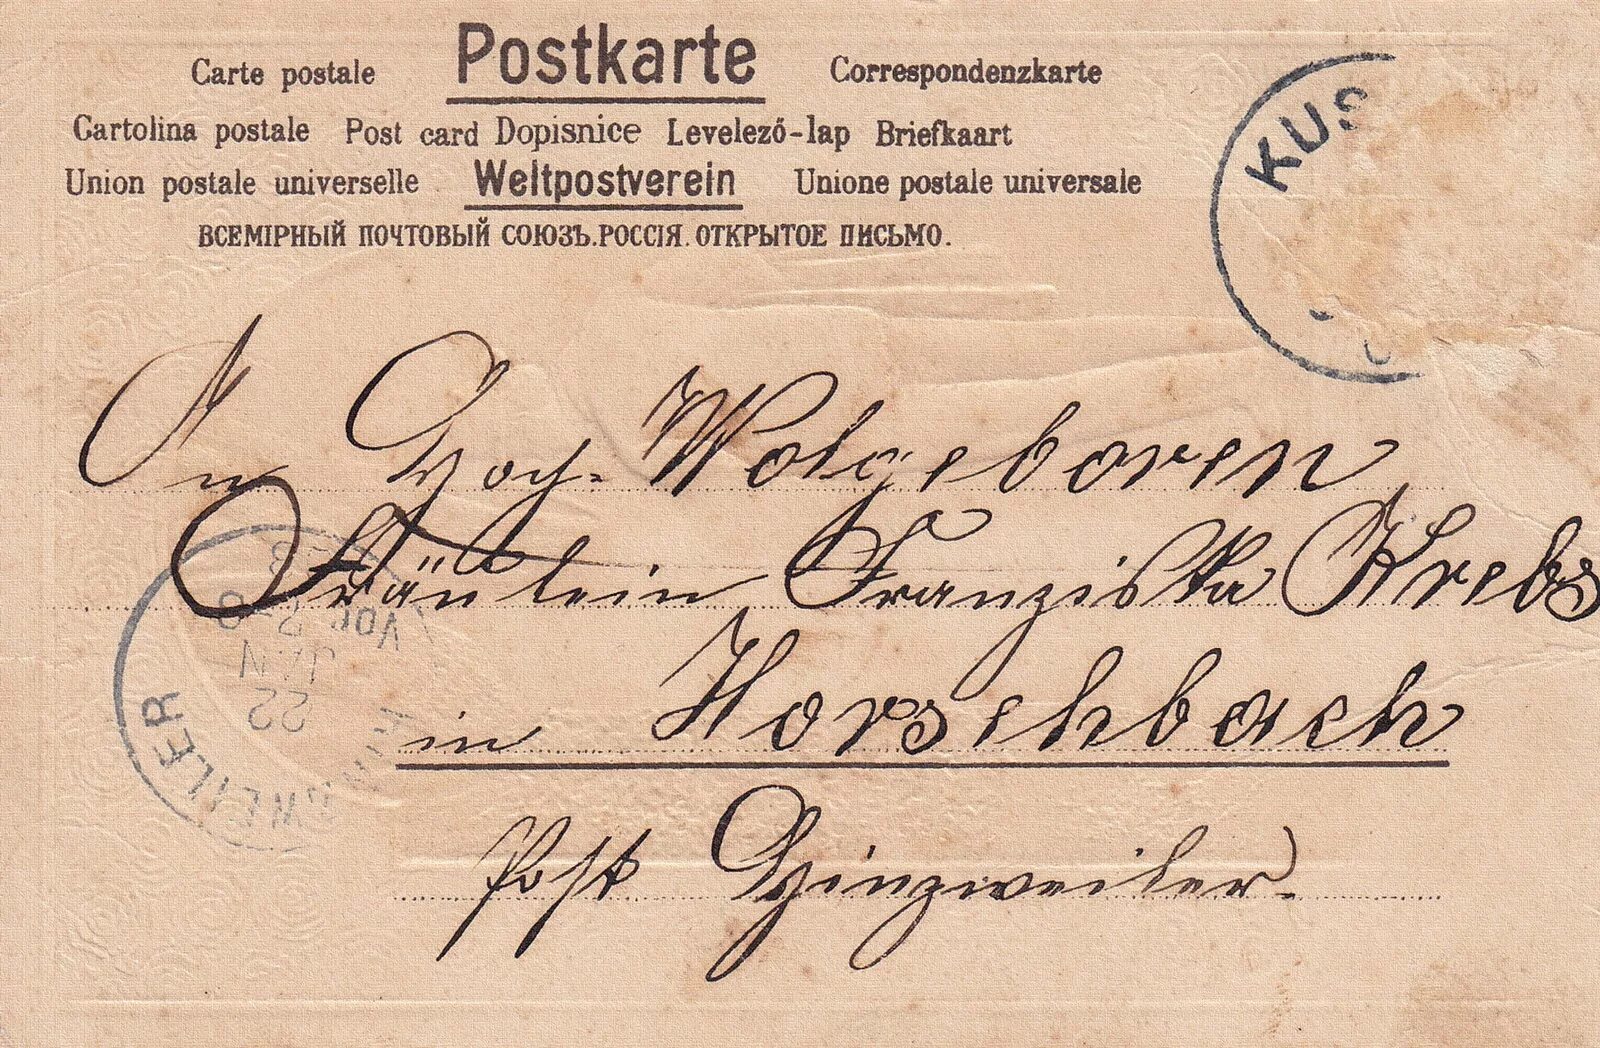 Postkarte
Carte postale Correspondenzkarte
Cartolina postale Post card Dopisnice Levelező-lap Briefkaart
Union postale universelle Weltpostverein Unione postale universale
ВСЕМІРНЫЙ ПОЧТОВЫЙ СОЮЗЪ.РОССІЯ. ОТКРЫТОЕ ПИСЬМО.
KUS
An Hoch-Wolgeboren
Fräulein Franziska Krebs
in Horschbach
Post Hinzweiler.
WEILER
22
JAN
VOR